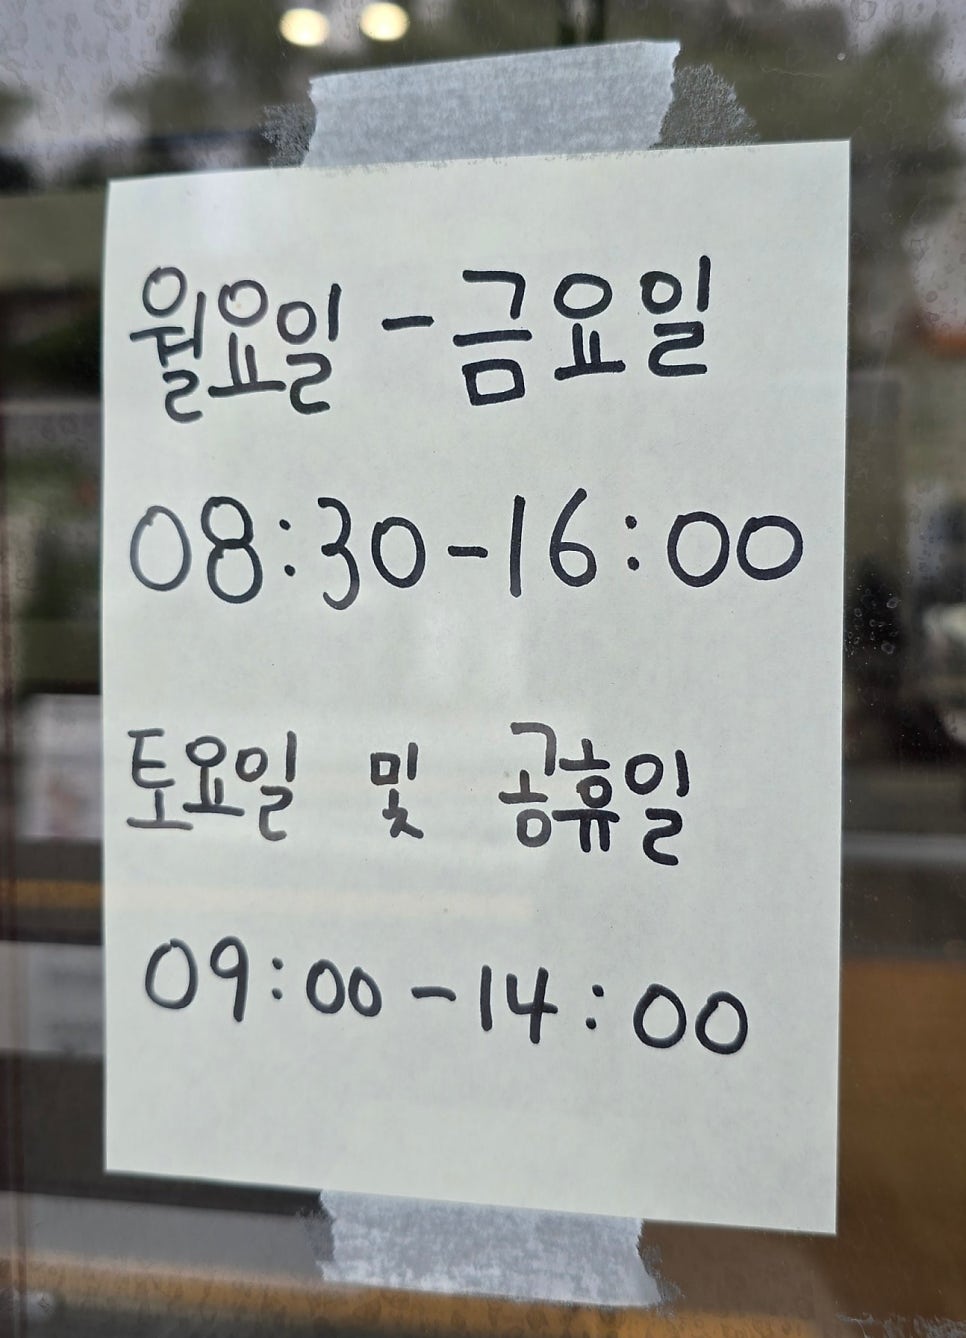 월요일 - 금요일
08:30-16:00
토요일 및 공휴일
09:00-14:00